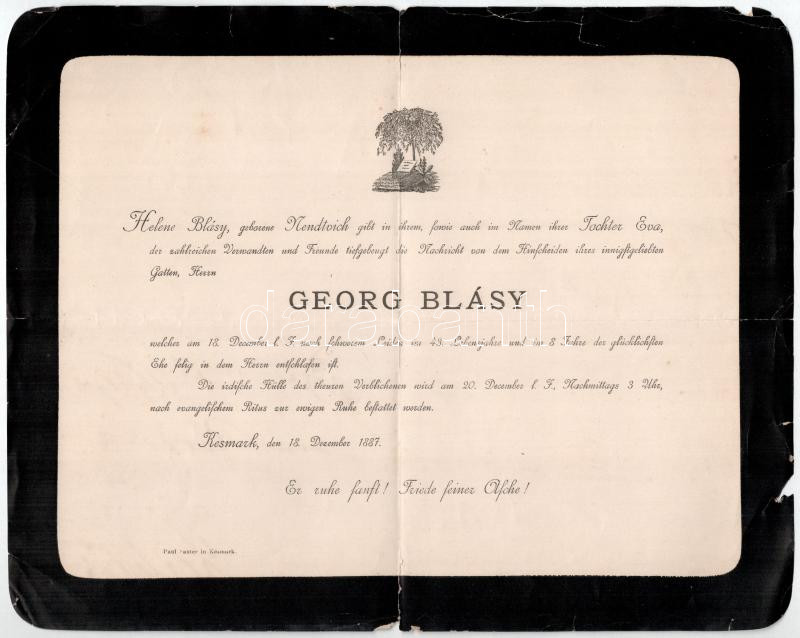 Helene Blásy, geborene Nendtvich gibt in ihrem, sowie auch im Namen ihrer Tochter Eva,
der zahlreichen Verwandten und Freunde tiefgebeugt die Nachricht von dem Hinscheiden ihres innigstgeliebten
Gatten, Herrn
GEORG BLÁSY
welcher am 18. December l. J. nach schwerem Leiden im 49. Lebensjahre und im 8 Jahre der glücklichsten
Ehe selig in dem Herrn entschlafen ist.
Die irdische Hülle des theuren Verblichenen wird am 20. December l. J., Nachmittags 3 Uhr,
nach evangelischem Ritus zur ewigen Ruhe bestattet werden.
Kesmark, den 18. Dezember 1887.
Er ruhe sanft! Friede seiner Asche!
Paul Sauter in Késmark.
darabanth